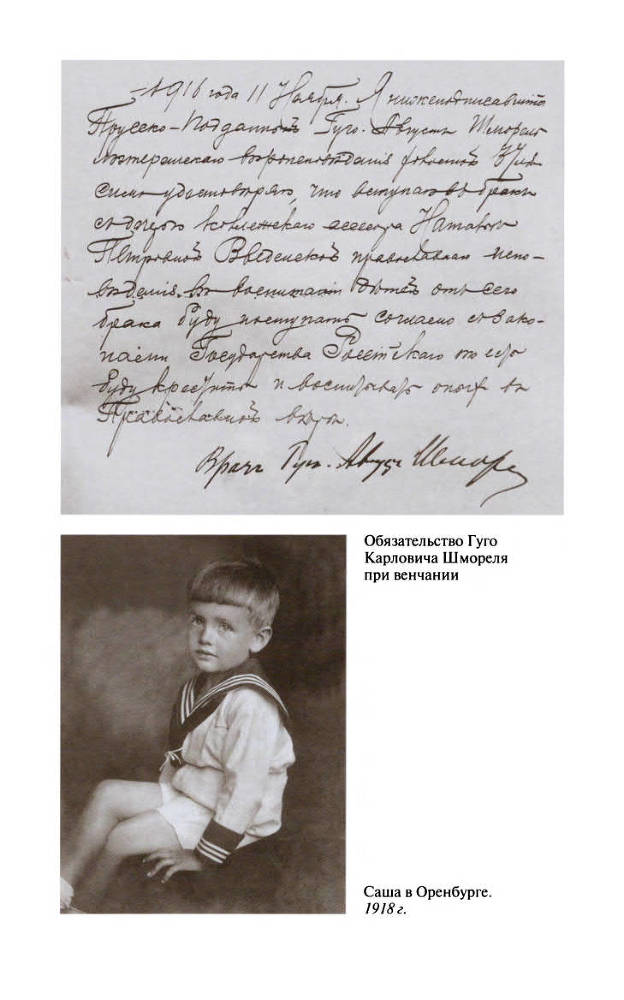 1916 года 11 Ноября. Я нижеподписавшійся
Прусско-Подданный Гуго-Августъ Шморель
лютеранскаго вѣроисповѣданія
симъ удостовѣряю, что вступая въ бракъ
съ дочерью коллежскаго ассесора Наталіей
Петровной Введенской православнаго испо-
вѣданія въ воспитаніи дѣтей отъ сего
брака буду поступать согласно съ зако-
нами Государства Россійскаго то есть
буду крестить и воспитывать оныхъ въ
Православной вѣрѣ.
Врачъ Гуго-Августъ Шморель
Обязательство Гуго
Карловича Шмореля
при венчании
Саша в Оренбурге.
1918 г.